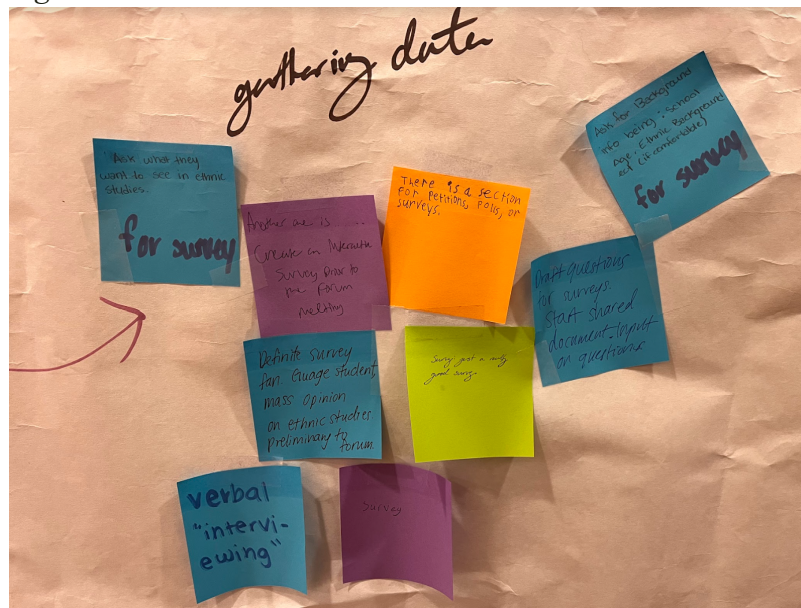 gathering data
"Ask what they
want to see in ethnic
studies.
for survey
Another one is ...
Create an Interactive
Survey prior to
the Forum
melting
There is a section
for petitions, polls, or
surveys.
Ask for Background
info being: school
Age, Ethnic Background
ect (if comfortable)
for survey
Draft questions
for surveys.
Start shared
document-input
on questions
Definite survey
fan. Guage student
mass opinion
on ethnic studies
preliminary to
forum.
Survey just a
good survey
verbal
"intervi-
ewing"
Survey